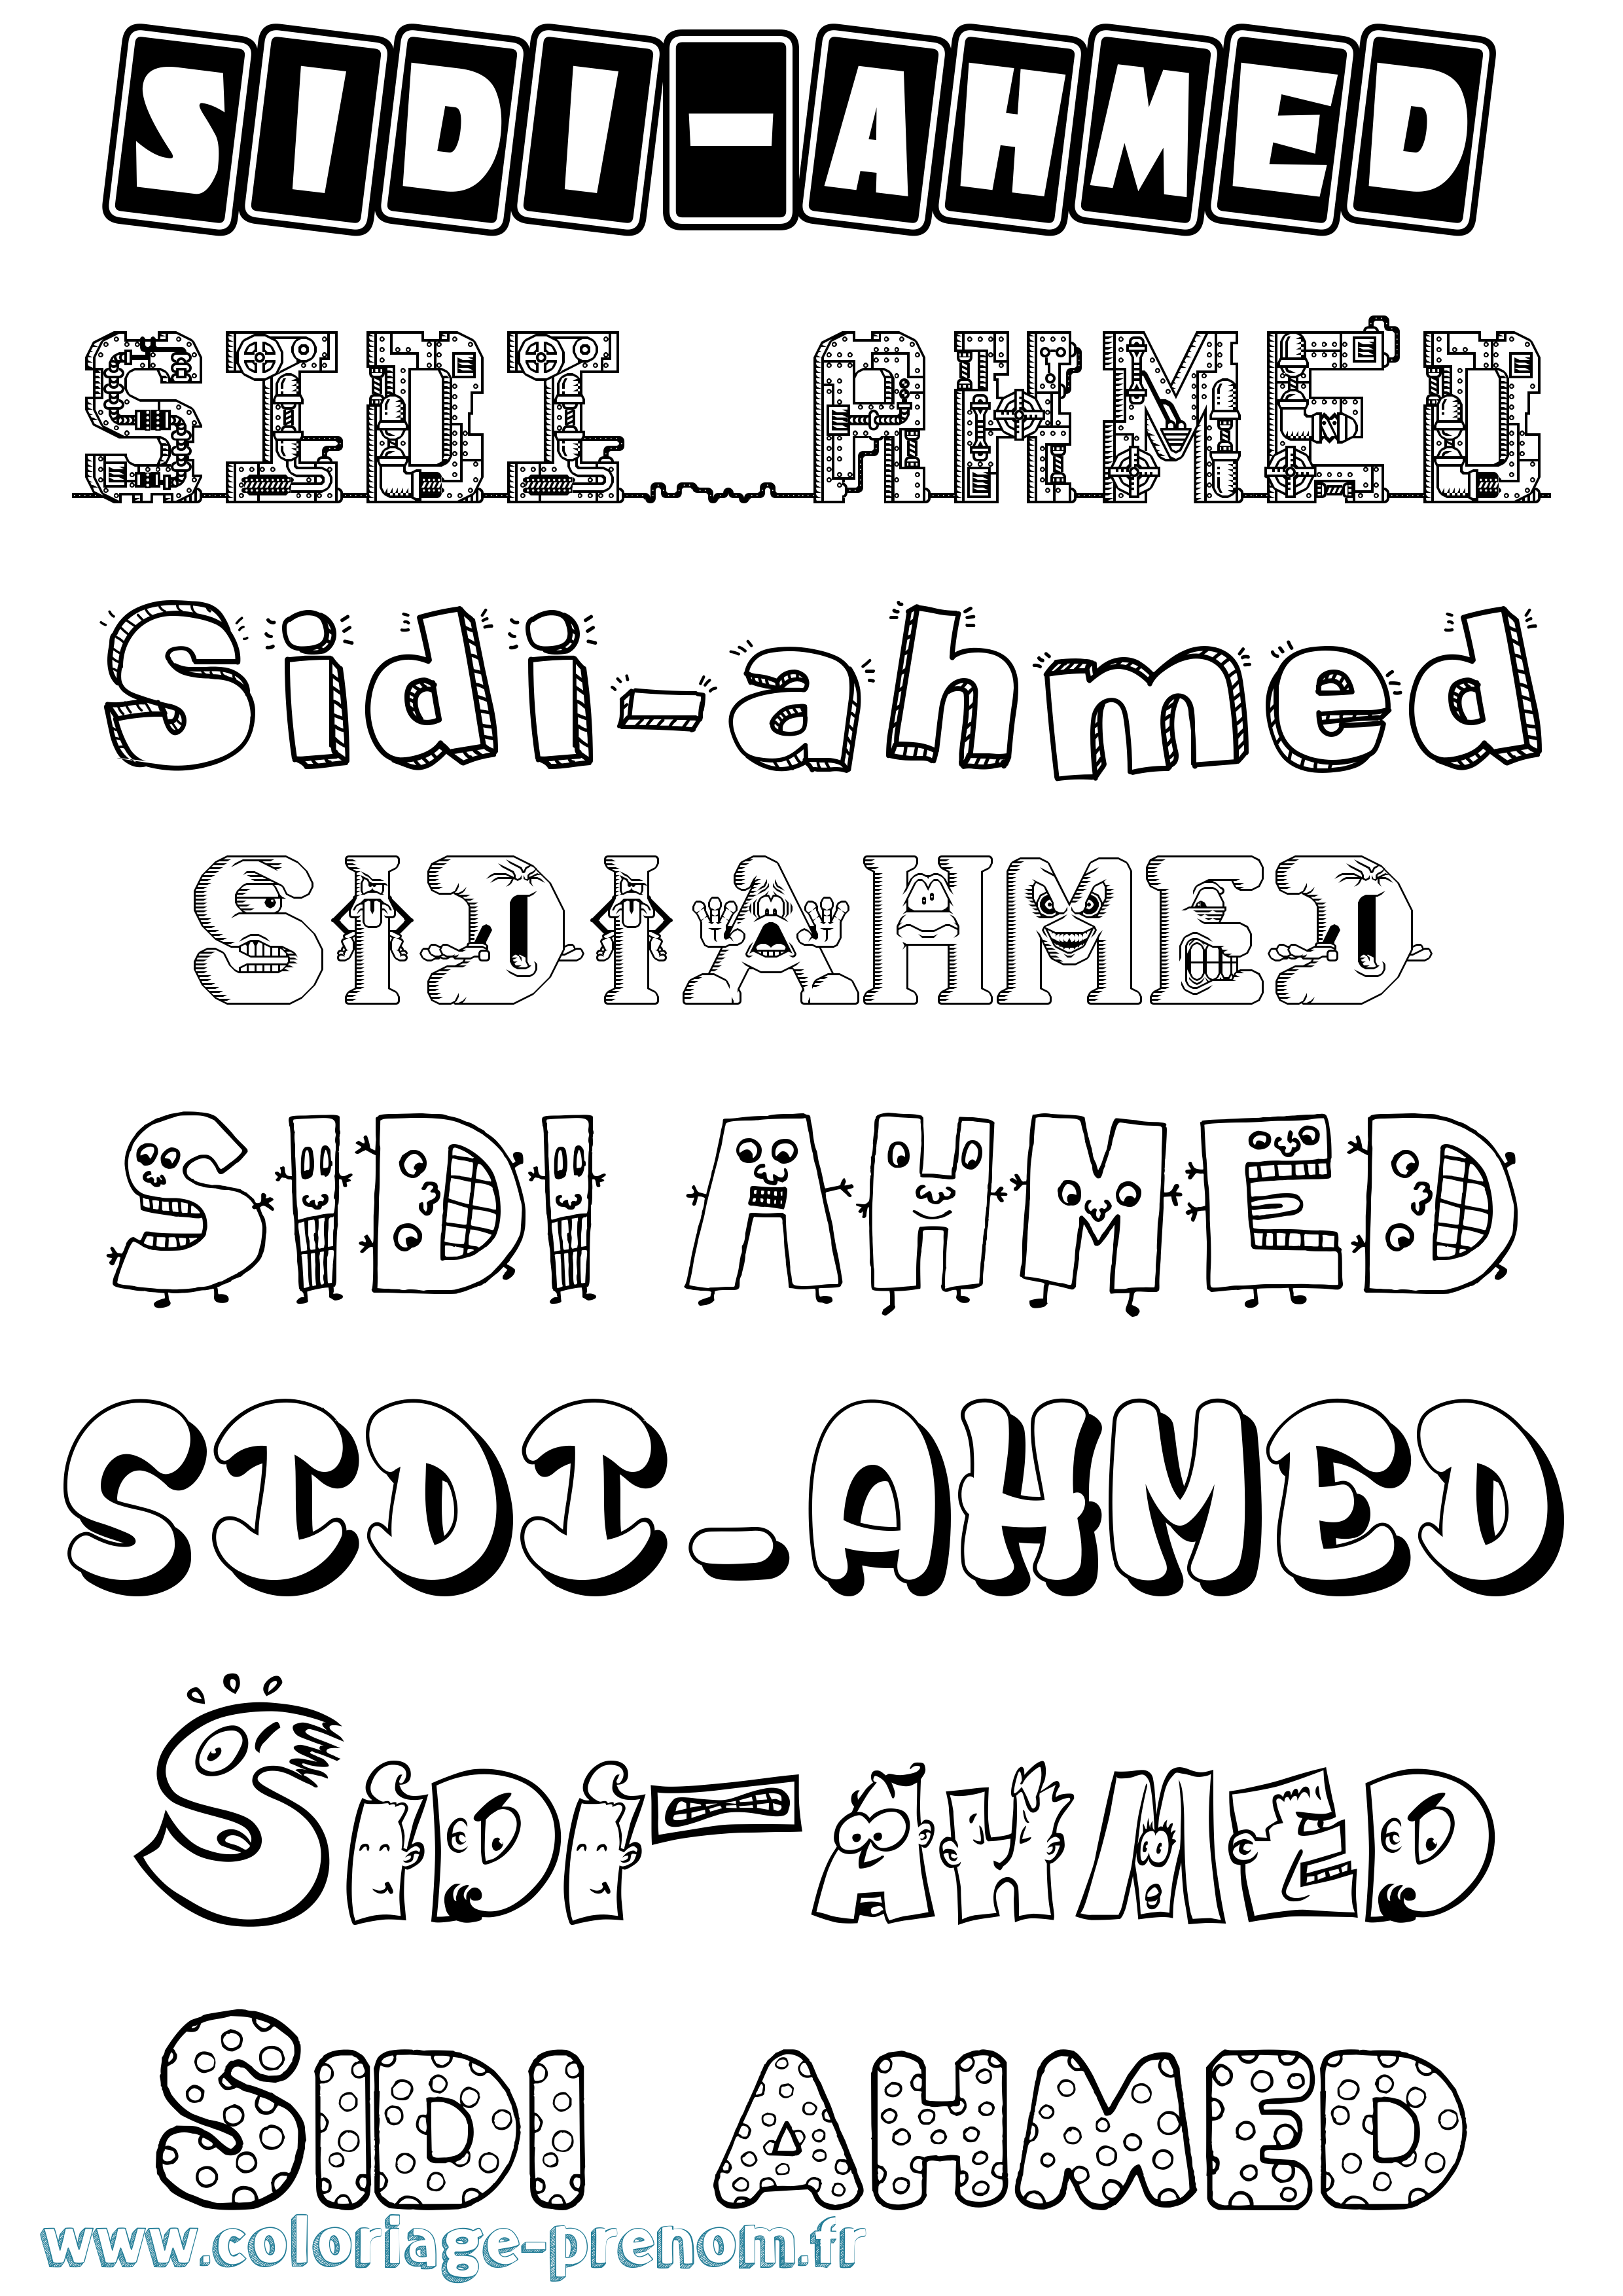 SIDI-AHMED
SIDI AHMED
Sidi-ahmed
SIDIAHMED
SIDI AHMED
SIDI-AHMED
SIDI-AHMED
SIDI AHMED
www.coloriage-prenom.fr